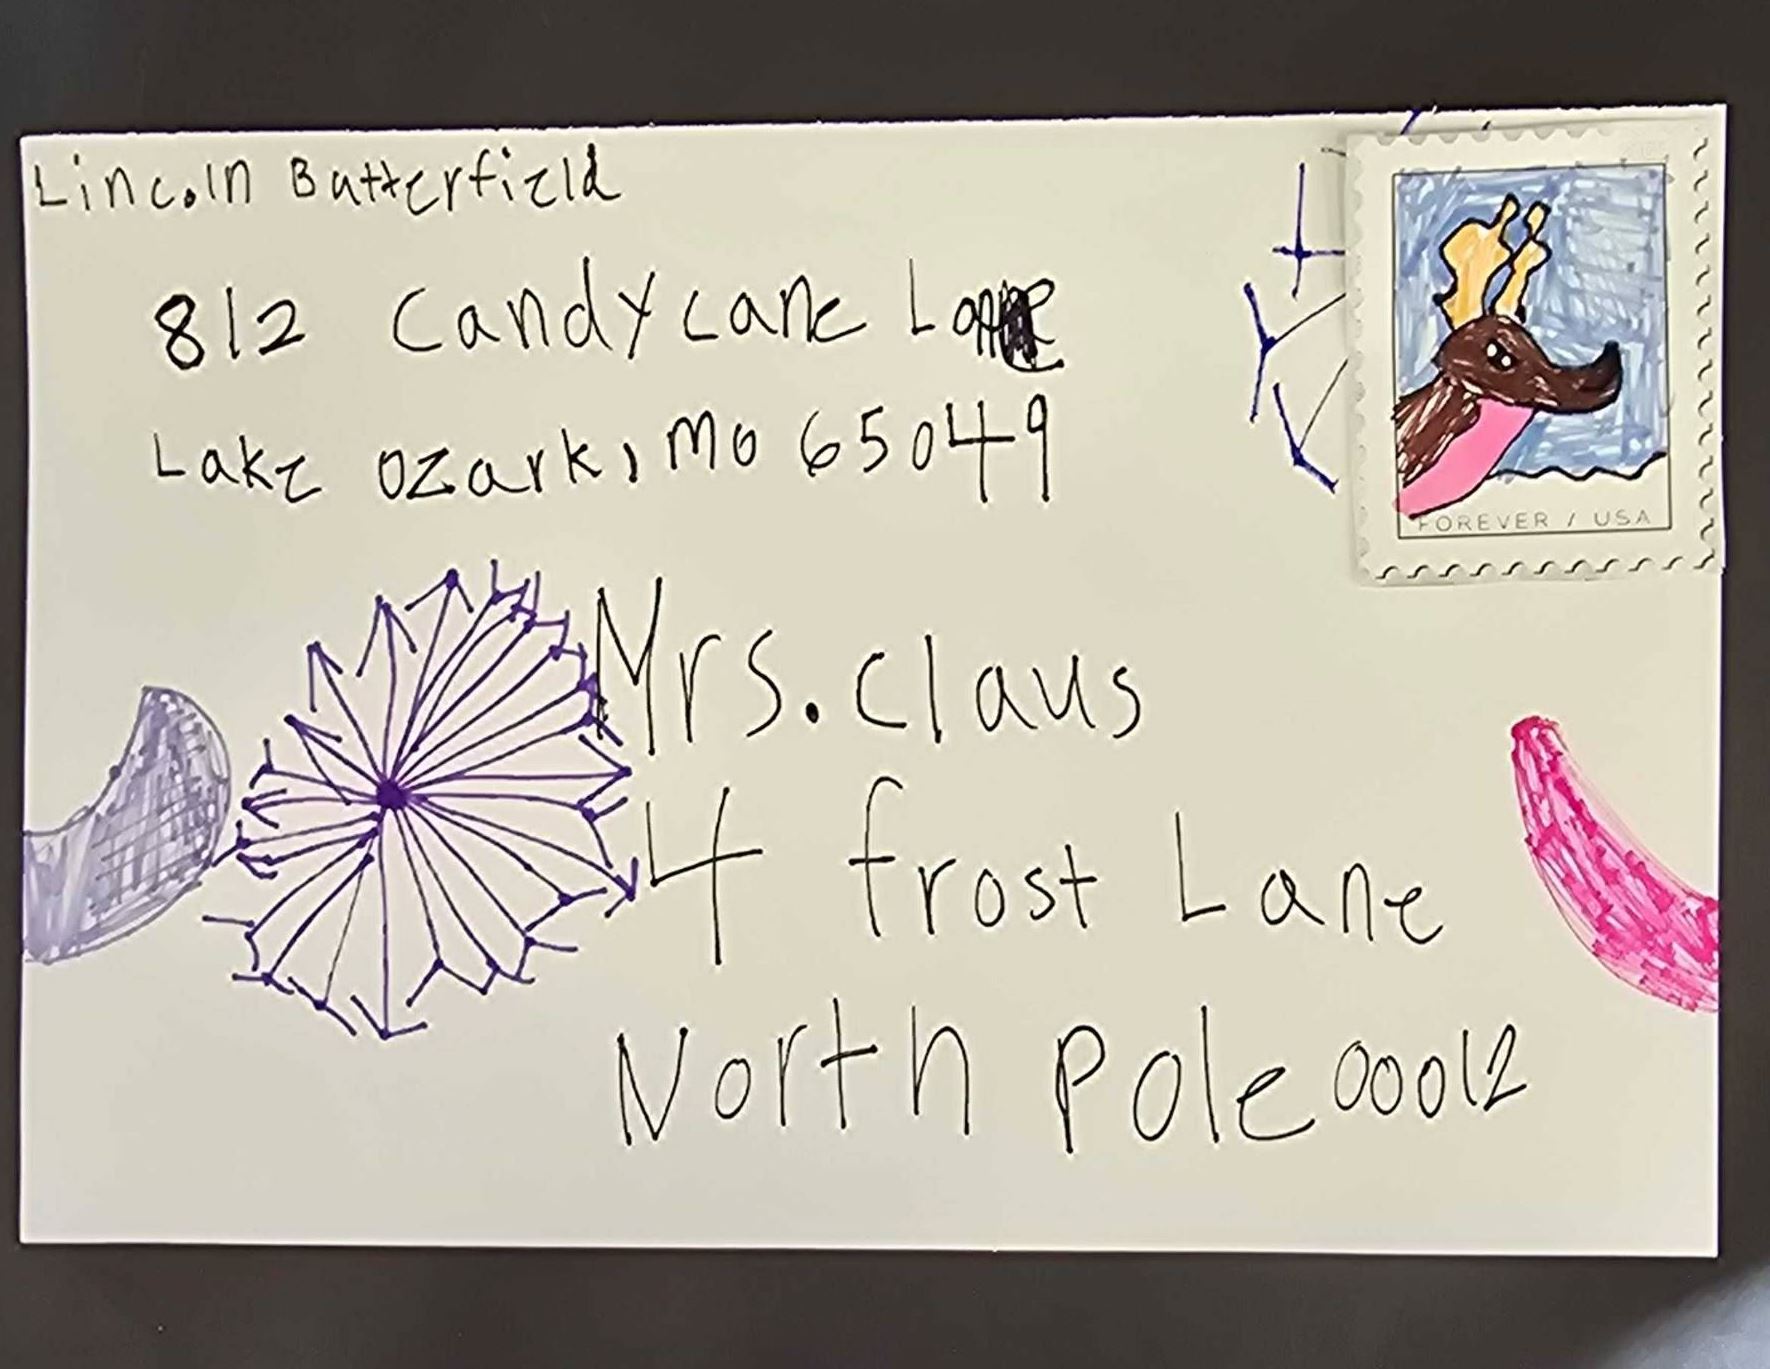 Lincoln Butterfield
812 Candycane Lane
Lake Ozark, MO 65049
FOREVER / USA
Mrs. Claus
4 frost Lane
North Pole 00012